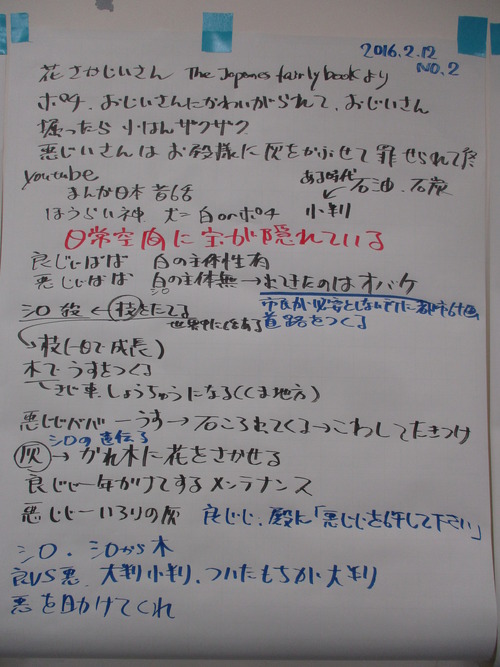 2016.2.12
NO.2
花さかじいさん The Japanes fairly bookより
ポチ、おじいさんにかわいがられて、おじいさん
掘ったら 小はんザクザク
悪じいさんは お殿様に 灰をかぶせて 罪せられて終
Youtube
まんが日本 昔6話
ある時代 石油、石炭
ほうらい神 犬=白orポチ 小判
日常空間に宝が隠れている
良じじばば 白の主体性有
悪じじばば 白の主体無→出てきたのはオバケ
シロ
シロ 殺 < 枝をたてる
道路をつくる
→枝(一日で成長)
木でうすをつくる
しょうちゅうになる((ま地方)
悪じじババーうす→石ころ出てくる→こわしてたきつけ
シロの遺伝る
灰→かれ木に花をさかせる
良じじ一年がけてする メンテナンス
悪じじーいろりの灰 良じじ、殿に「悪じじを許して下さい」
シロ・シロから木
良VS悪、大判小判、ついたもちが大判
悪を助けてくれ